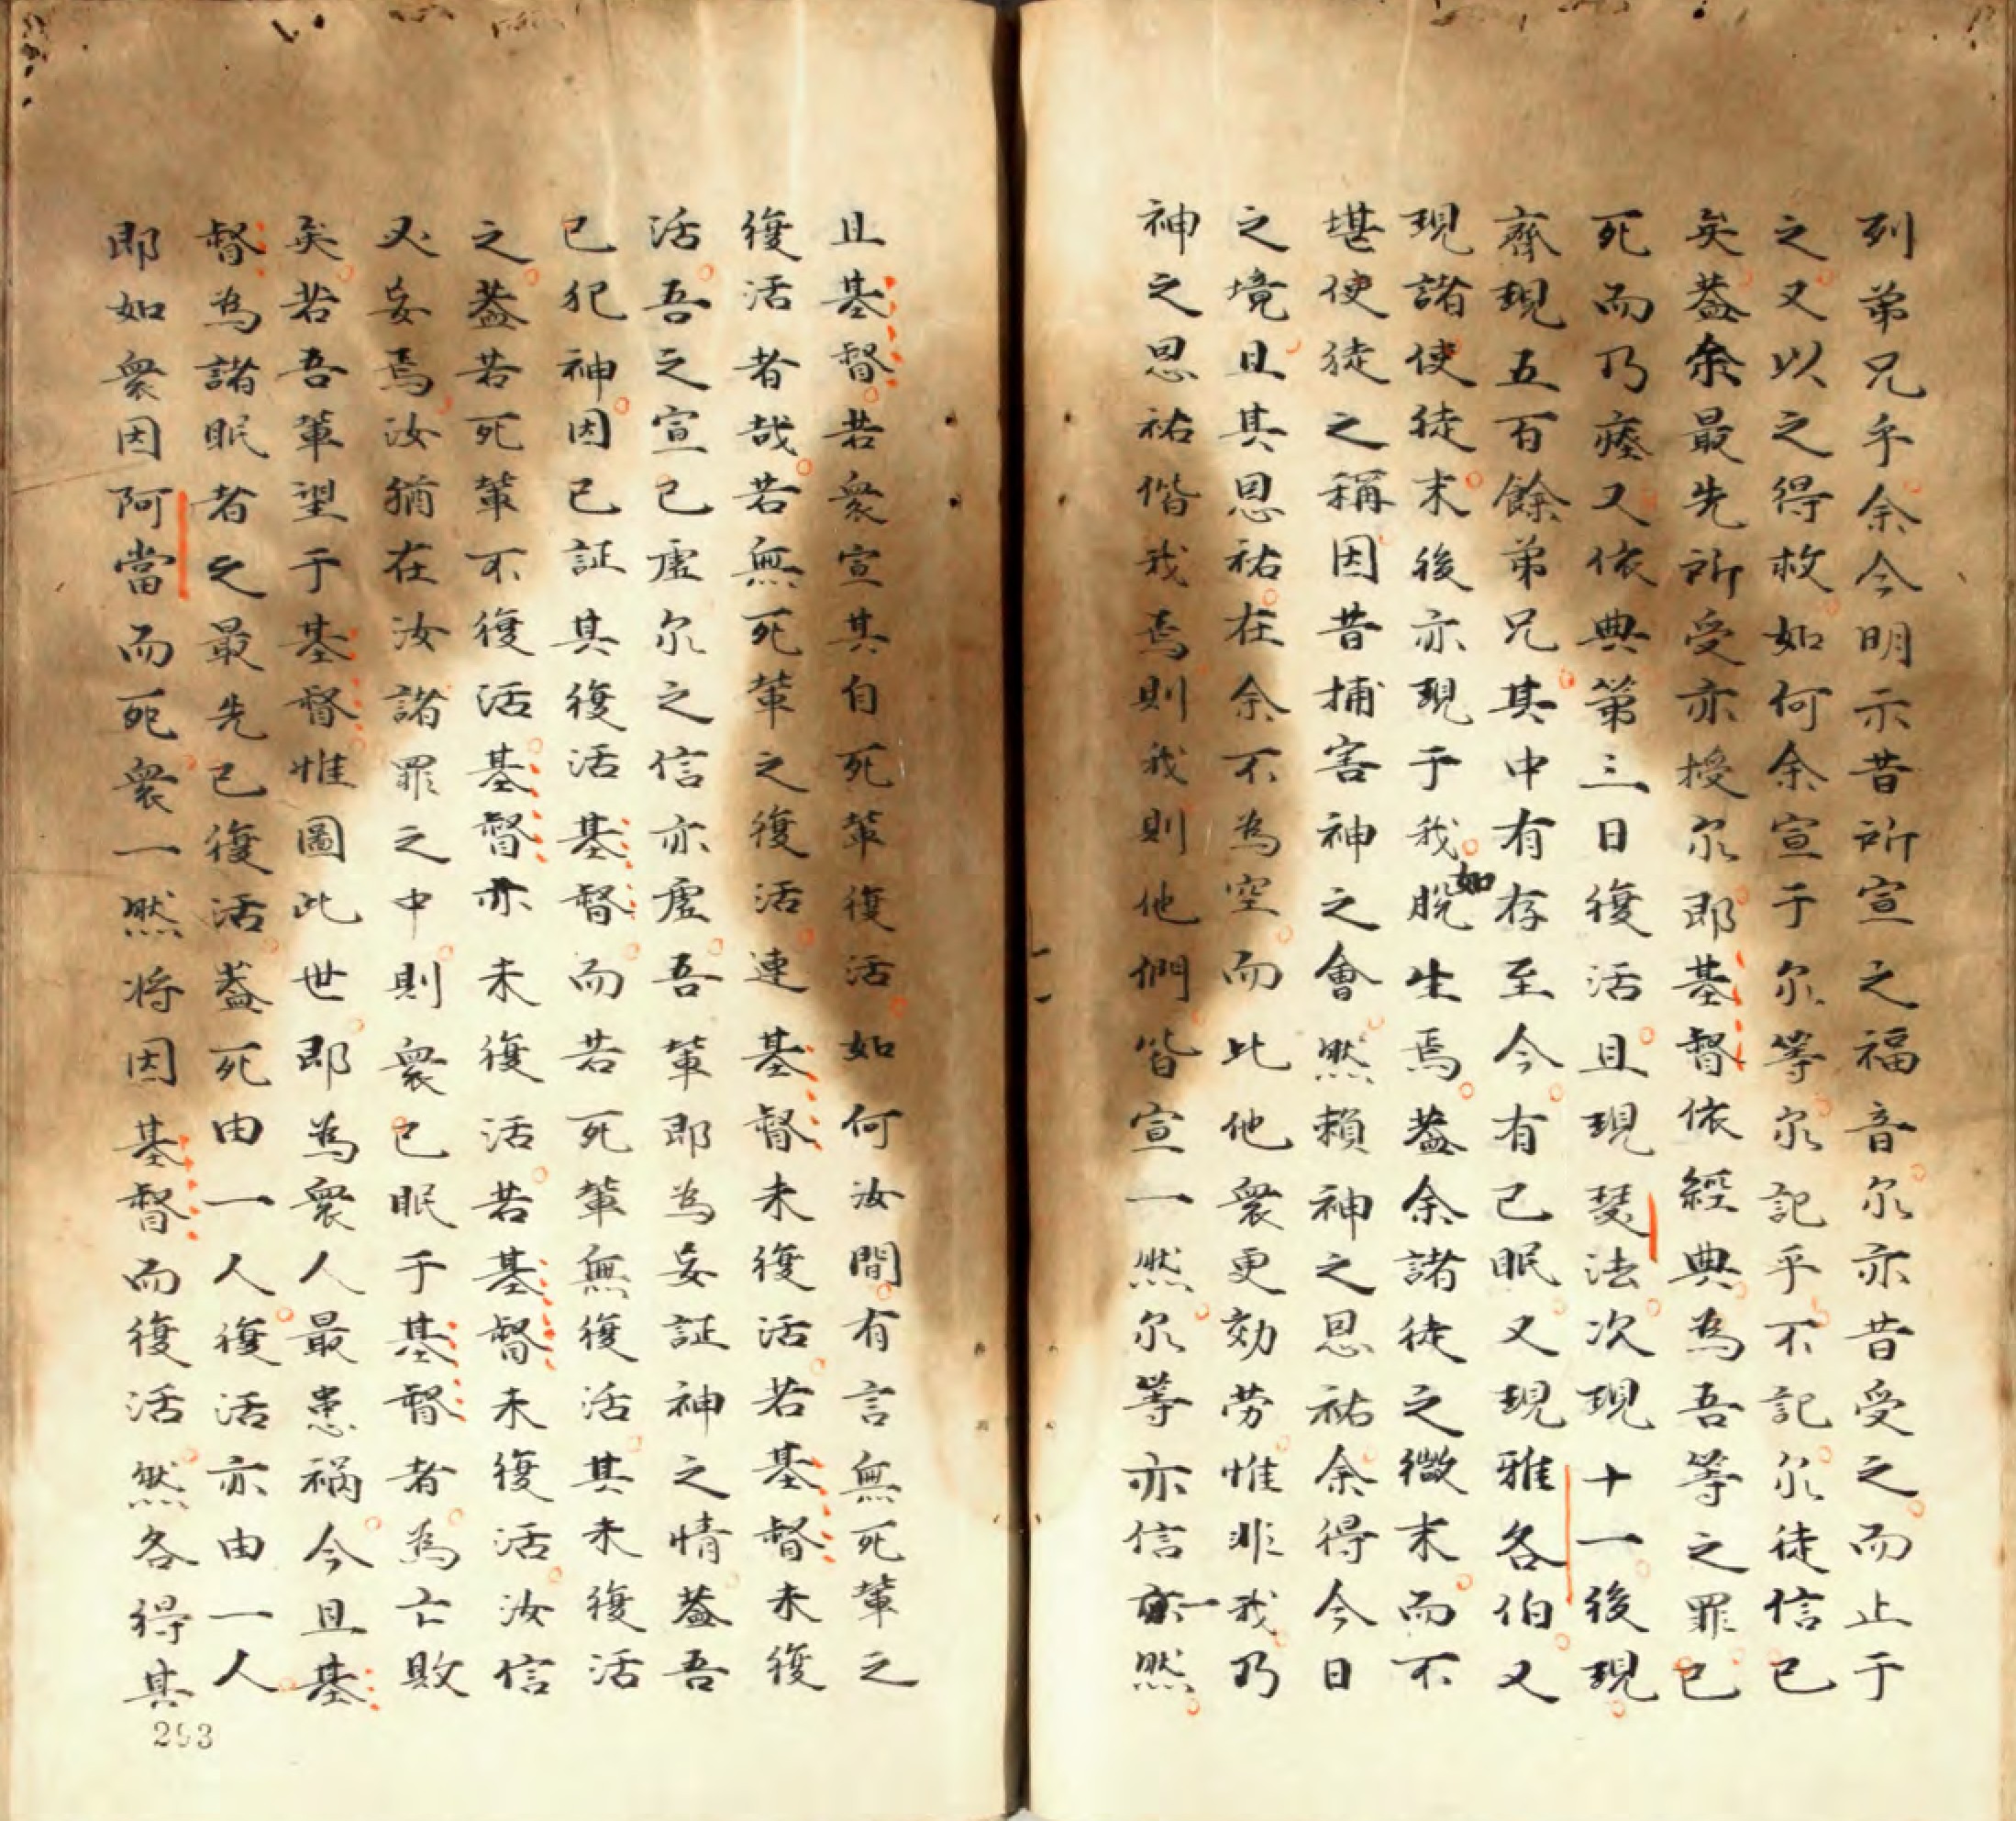 列弟兄乎余今明示昔所宣之福音尔亦昔受之而止于
之又以之得救如何余宣于尔等尔記乎不記尔徒信已
矣葢余最先所受亦授尔即基督依經典為吾等之罪已
死而乃瘞又依典第三日復活且現琹法次現十一後現
齊現五百餘弟兄其中有存至今有已眠又現雅各伯又
現諸使徒末後亦現于我如脫生焉葢余諸徒之微末而不
堪使徒之稱因昔捕害神之會然賴神之恩祐余得今日
之境且其恩祐在余不為空而此他衆更効劳惟非我乃
神之恩祐偕我焉則我則他們皆宣一然尔等亦信一然
且基督若衆宣其自死軰復活如何汝間有言無死軰之
復活者哉若無死軰之復活連基督未復活若基督未復
活吾之宣已虛尔之信亦虛吾軰即為妄証神之情葢吾
已犯神因已証其復活基督而若死軰無復活其未復活
之葢若死軰不復活基督亦未復活若基督未復活汝信
乃妄焉汝猶在汝諸罪之中則衆已眠于基督者為亡敗
矣若吾軰望于基督惟圖此世即為衆人最患禍今且基
督為諸眠者之最先已復活葢死由一人復活亦由一人
即如衆因阿當而死衆一然将因基督而復活然各得其
293